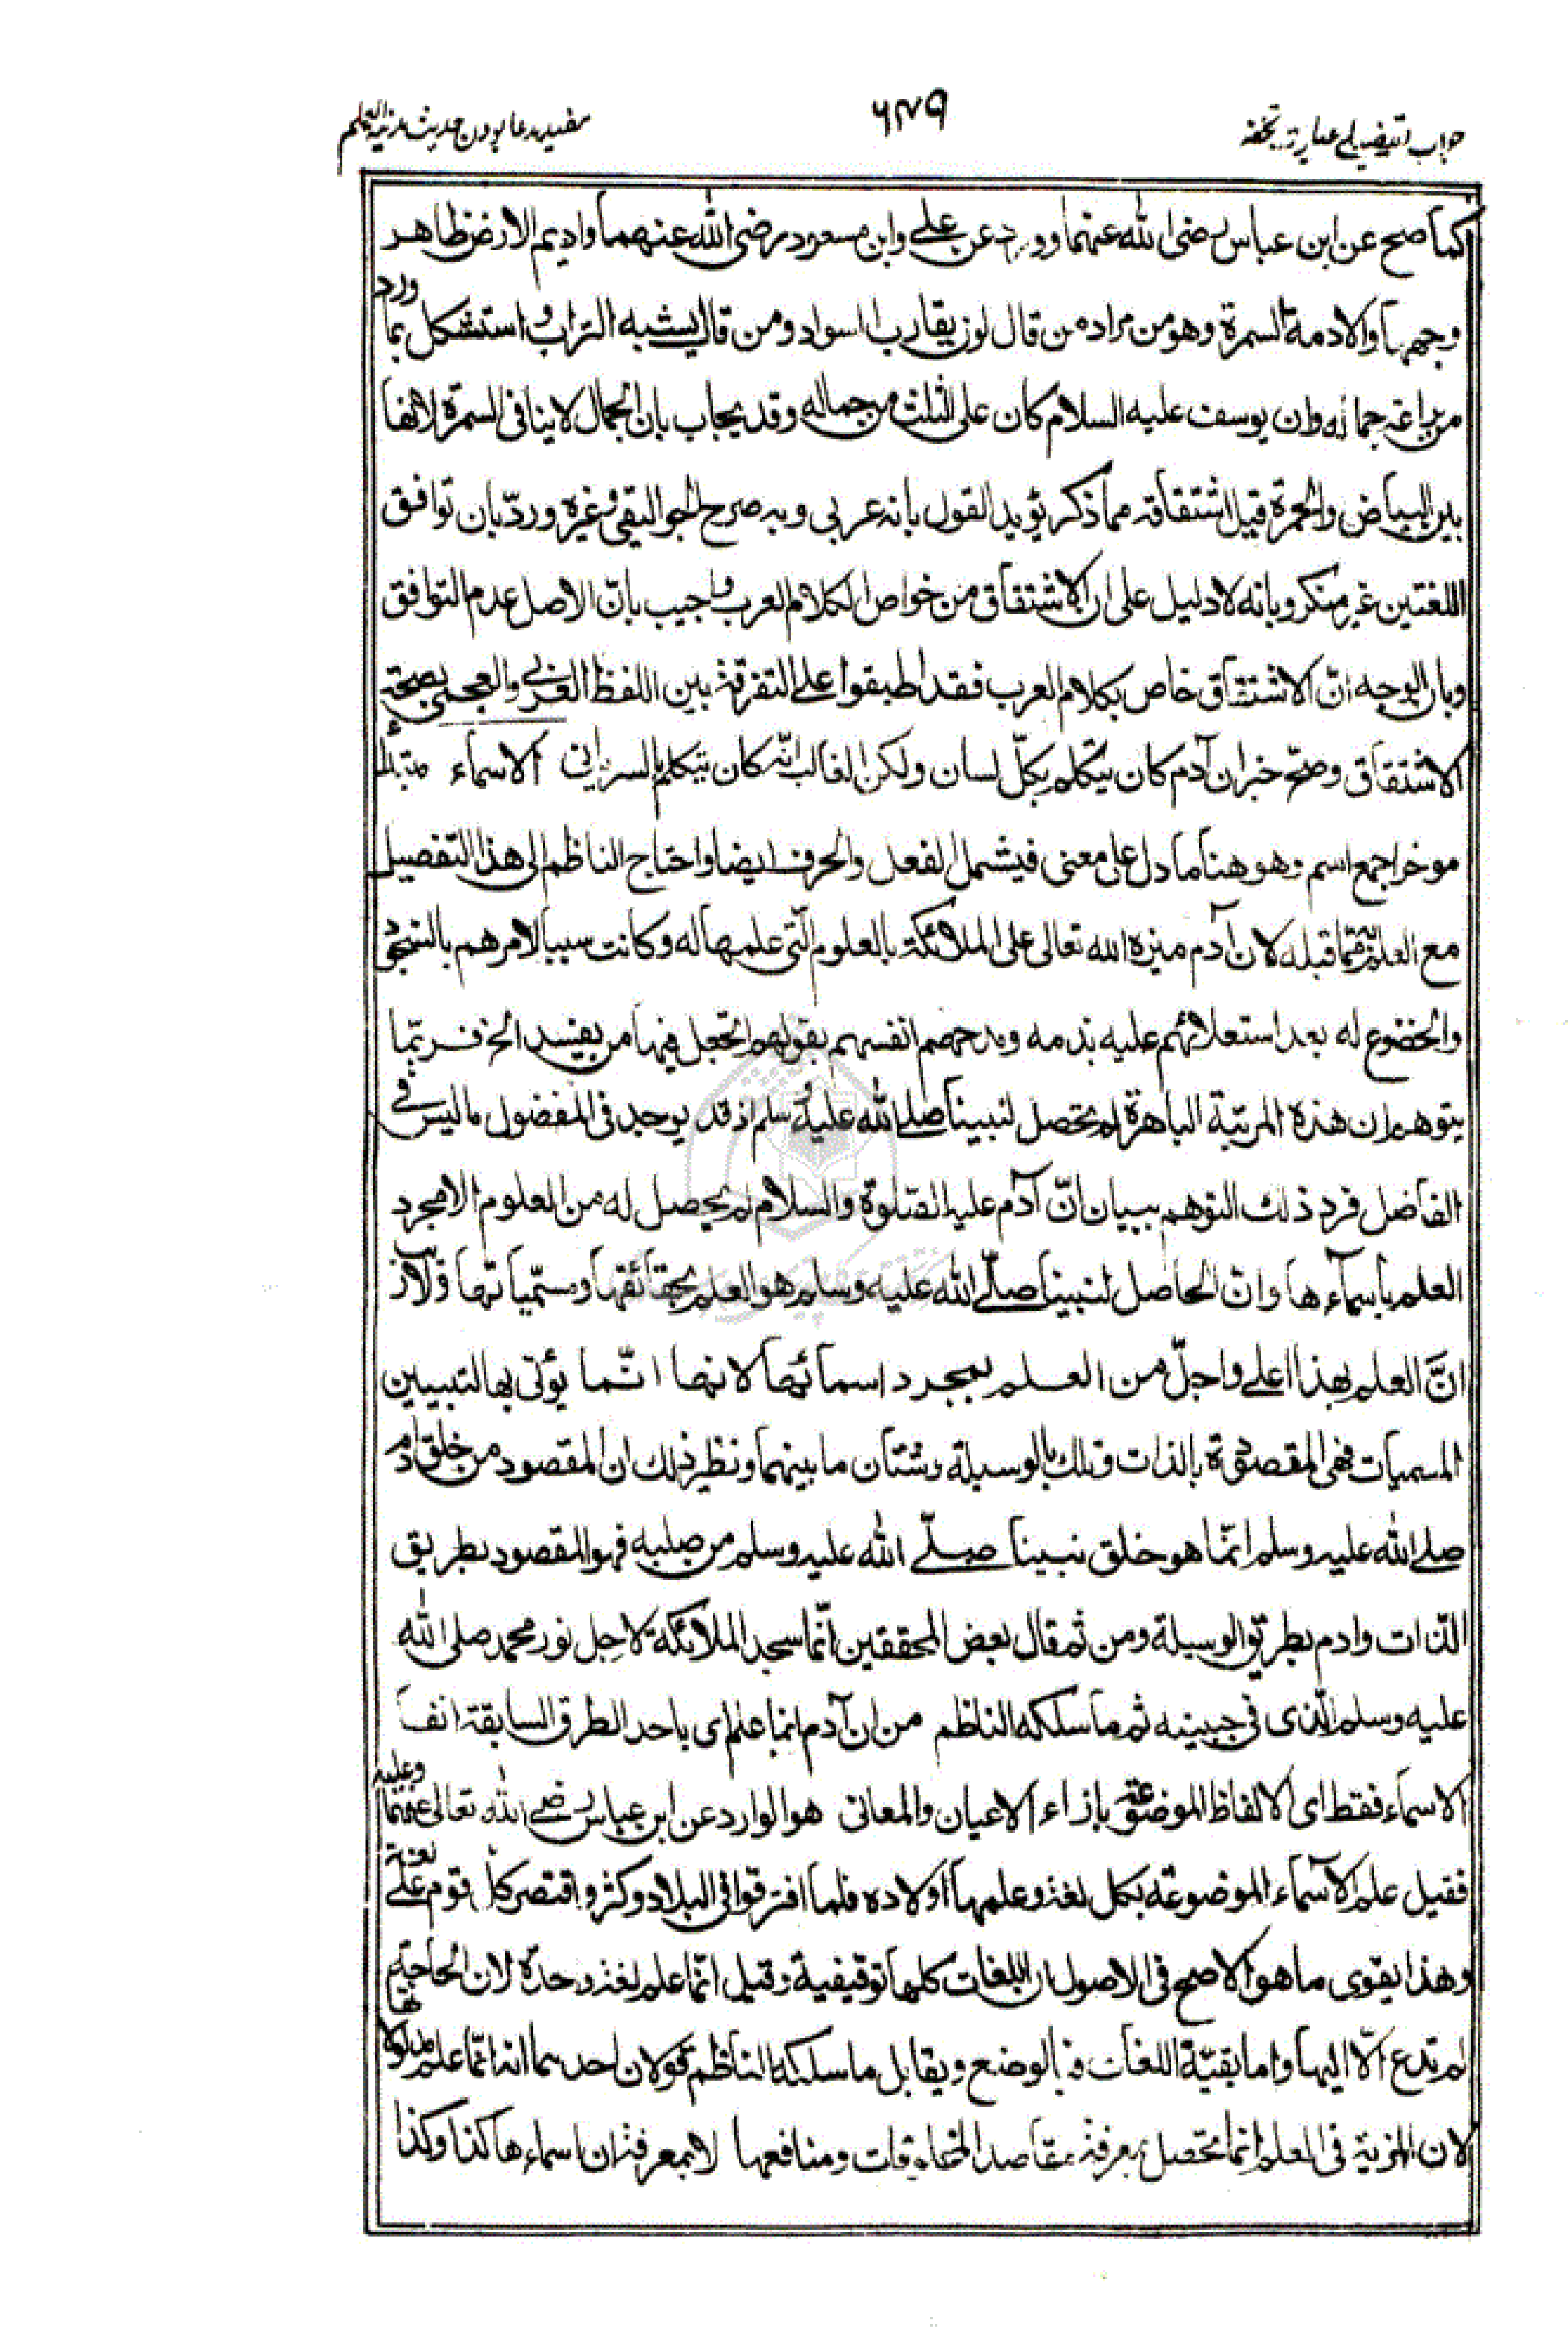 جواب تفصیلی عبارت تحفه
۶۷۹
مفید مدعا بودن حدیث مدینة العلم
كما صح عن ابن عباس رضى الله عنهما وورد عن على وابن مسعود رضى الله عنهما واديم الارض ظاهر
وجهها والادمة السمرة وهو من مراده من قال لون يقارب السواد ومن قال يشبه التراب واستشكل بما ورد
من براعة جماله وان يوسف عليه السلام كان على الثلث من جماله وقد يجاب بان الجمال لا ينافى السمرة لانها
بين البياض والحمرة قيل اشتقاقه مما ذكر يؤيد القول بانه عربي وبه صرح الجواليقى وغيره وردّ بان توافق
اللغتين غير منكر وبانه لا دليل على ان الاشتقاق من خواص الكلام العرب واجيب بانّ الاصل عدم التوافق
وبان الوجه انّ الاشتقاق خاص بكلام العرب فقد اطبقوا على التفرقة بين اللفظ العربي والعجمى بصحة
الاشتقاق وصحّ خبر ان آدم كان يتكلم بكلّ لسان ولكن الغالب انّه كان يتكلم بالسرياني الاسماء مبتدأ
موخر اجمع اسم وهو هنا ما دل على معنى فيشمل الفعل والحرف ايضا واحتاج الناظم الى هذا التفصيل
مع العلم به مما قبله لان آدم ميزه الله تعالى على الملائكة بالعلوم الّتى علمها له وكانت سببا لامرهم بالسجود
والخضوع له بعد استعلائهم عليه بذمه ومدحهم انفسهم بقولهم اتجعل فيها من يفسد الخ فربّما
يتوهم ان هذه المرتبة الباهرة لم تحصل لنبينا صلى الله عليه وسلم اذ قد يوجد فى المفضول ما ليس فى
الفاضل فرد ذلك التوهم ببيان انّ آدم عليه الصّلوة والسلام لم يحصل له من العلوم الا مجرد
العلم باسمآءها وانّ الحاصل لنبينا صلّى الله عليه وسلم هو العلم بحقائقها ومسمّياتها ولا ريب
انّ العلم بهذا اعلى واجلّ من العلم بمجرد اسمائها لانها انّما يؤتى بها لتبيين
المسميات فهى المقصودة بالذات وتلك بالوسيلة وشتان ما بينهما ونظير ذلك ان المقصود من خلق آدم
صلى الله عليه وسلم انّما هو خلق نبينا صلّى الله عليه وسلم من صلبه فهو المقصود بطريق
الذات وادم بطريق الوسيلة ومن ثم قال بعض المحققين انّما سجد الملائكة لاجل نور محمد صلى الله
عليه وسلم الّذى فى جبينه ثم ما سلكه الناظم من ان آدم انما علم اى باحد الطرق السابقة انفا
الاسماء فقط اى الالفاظ الموضوعة بازاء الاعيان والمعانى هو الوارد عن ابن عباس رضى الله تعالى عنهما وعليه
فقيل علم الاسماء الموضوعة بكل لغة وعلمها اولاده فلما افترقوا فى البلاد وكثروا اقتصر كل قوم على لغة
وهذا يقوى ما هو الاصح فى الاصول ان اللغات كلها توقيفية وقيل انّما علم لغة وحدة لان الحاجة
لم تدع الّا اليها واما بقيّة اللغات فبالوضع ويقابل ما سلكه الناظم قولان احدهما انه انّما علم مدلولاتها
لان المزية فى العلم انما تحصل بمعرفة مقاصد المخلوقات ومنافعها لا بمعرفة ان اسماءها كذا وكذا